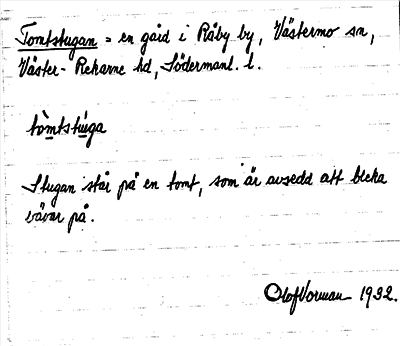 Tomtstugan = en gård i Råby by, Västermo sn,
Väster-Rekarne hd, Södermanl. l.
tòmtstùga
Stugan står på en tomt, som är avsedd att bleka
vävar på.
Olof Norman 1932.